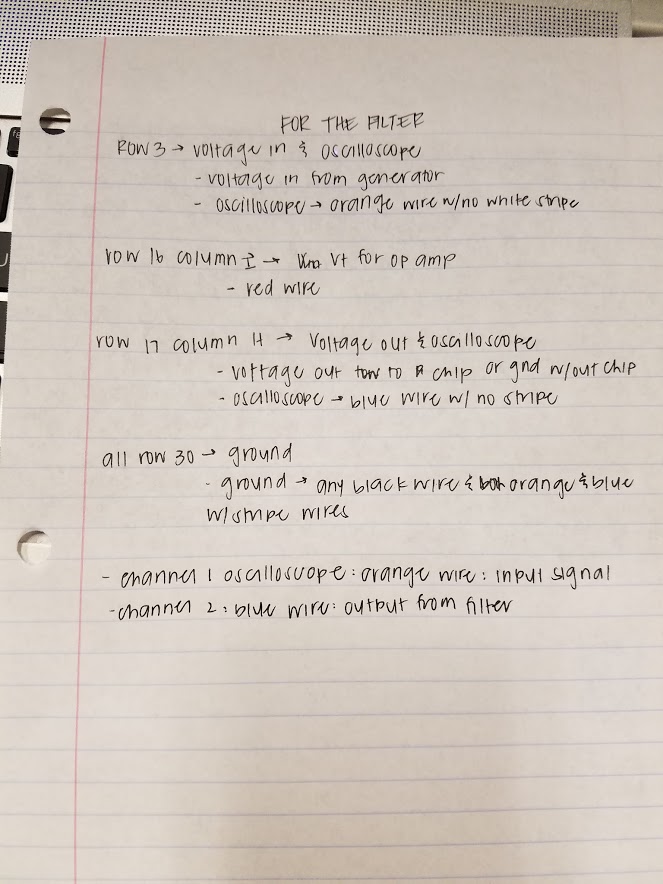 FOR THE FILTER
ROW 3 → voltage in & oscilloscope
- voltage in from generator
- oscilloscope → orange wire w/no white stripe
row 16 column I → V+ for op amp
- red wire
row 17 column H → Voltage out & oscilloscope
- voltage out to chip or gnd w/out chip
- oscilloscope → blue wire w/ no stripe
all row 30 → ground
- ground → any black wire & orange & blue
w/stripe wires
- channel 1 oscilloscope: orange wire: input signal
- channel 2: blue wire: output from filter